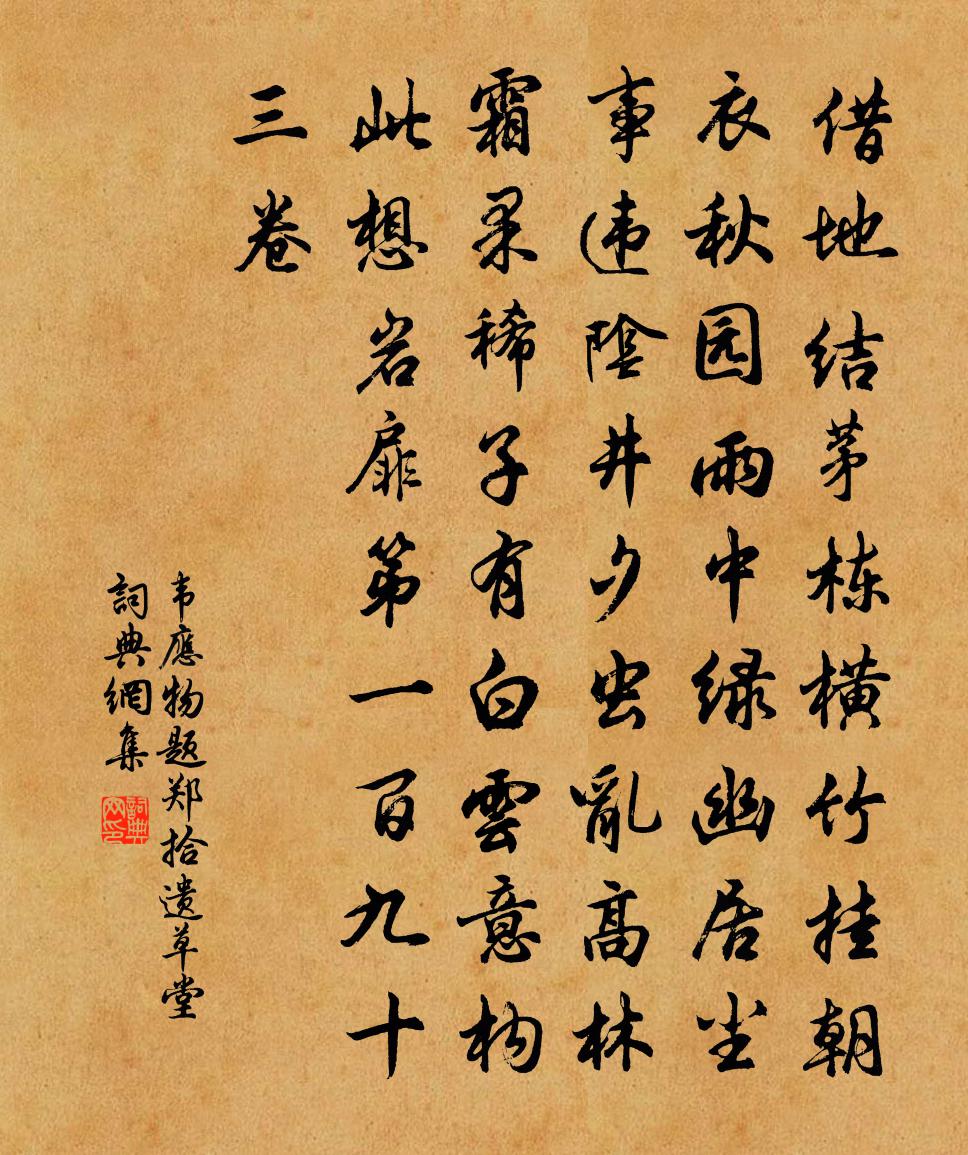 借地结茅栋横竹挂朝
衣秋园雨中绿幽居尘
事违陰井夕虫亂髙林
霜果稀子有白雲意构
此想岩扉第一百九十
三卷
韦應物题郑拾遗草堂
詞典網集
詞典网印